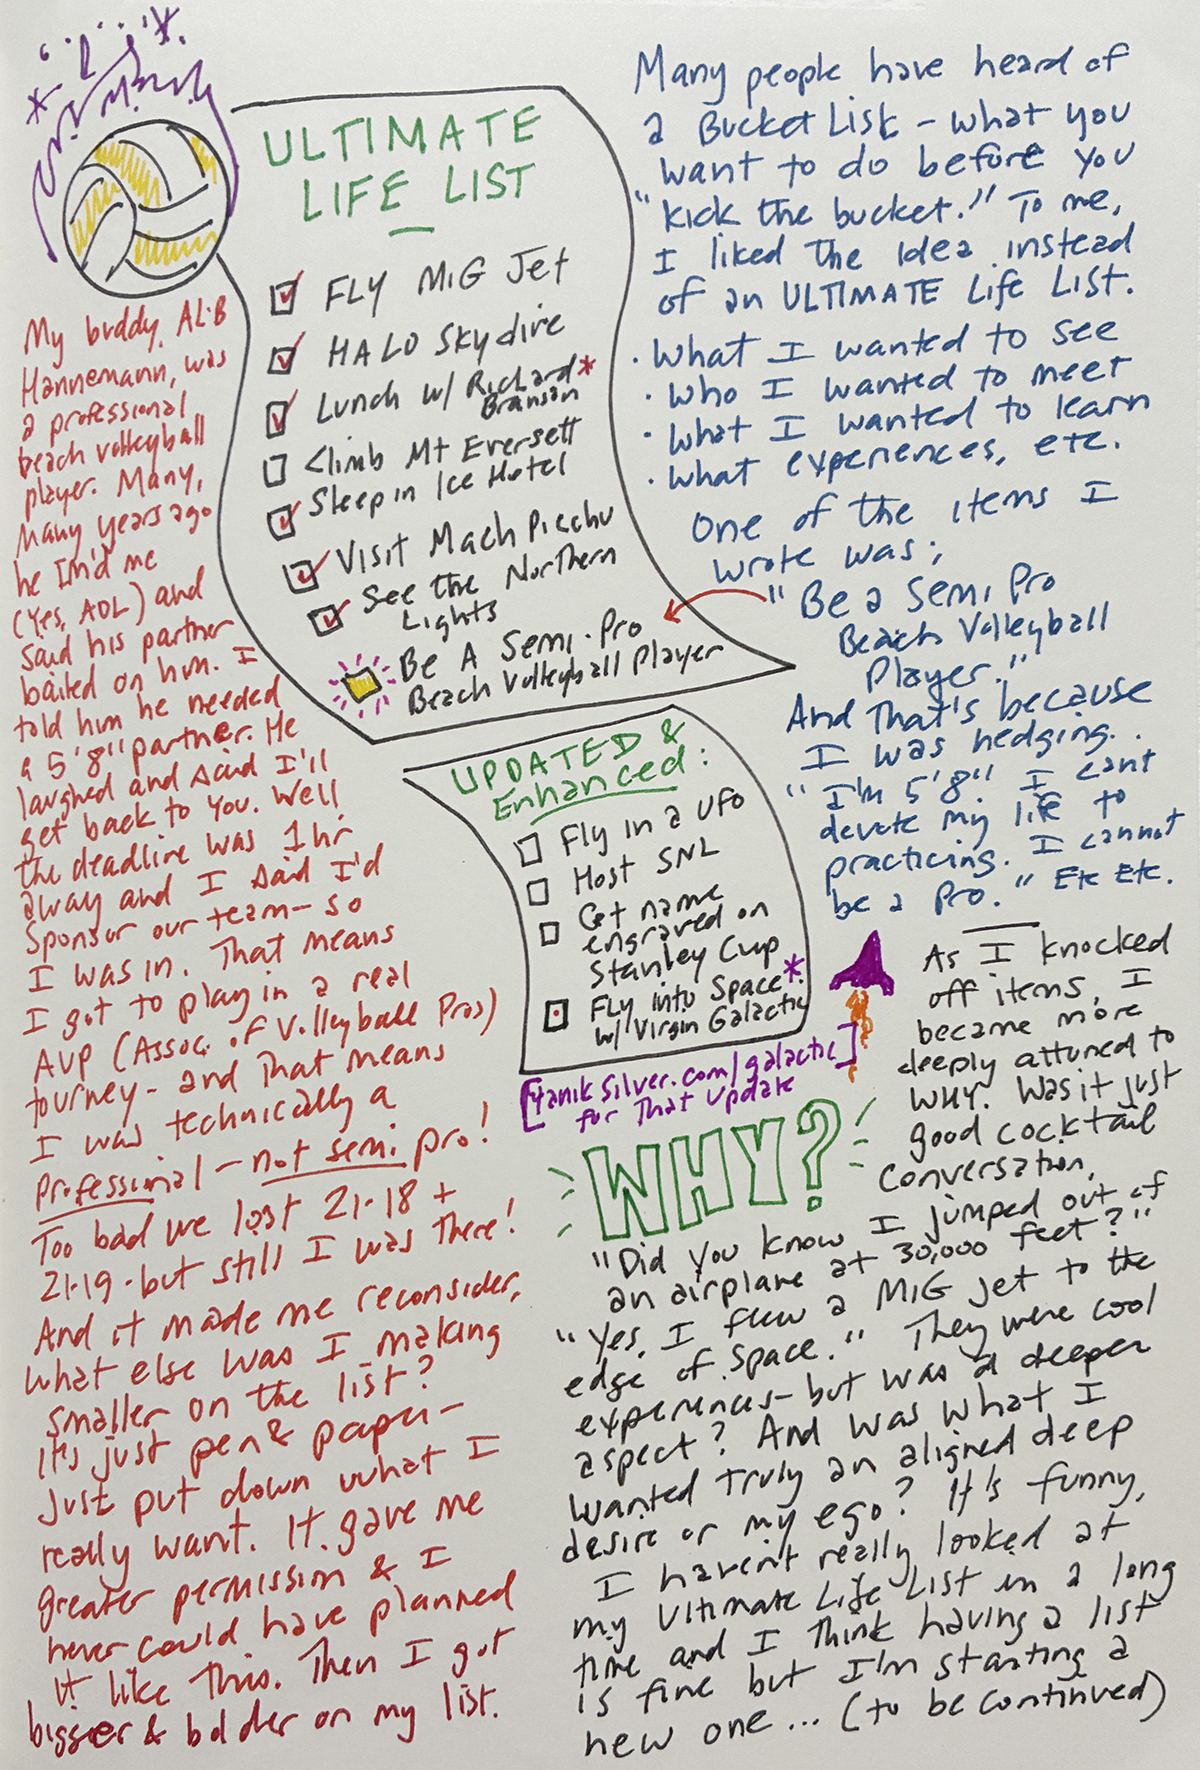 ULTIMATE
LIFE LIST
FLY MiG Jet
HALO Skydive
Lunch w/ Richard*
Branson
Climb Mt Eversett
Sleep in Ice Hotel
Visit Mach Picchu
See the Northern
Lights
Be A Semi-Pro
Beach Volleyball Player
Many people have heard of
a Bucket List - what you
want to do before you
"kick the bucket." To me,
I liked the Idea instead
of an ULTIMATE Life LIST.
• What I wanted to see
• Who I wanted to meet
• What I wanted to learn
• What experiences, etc.
One of the items I
wrote was;
"Be a Semi Pro
Beach Volleyball
Player."
And That's because
I was hedging.
"I'm 5'8" I cant
devote my life to
practicing. I cannot
be a Pro." Etc Etc.
My buddy, ALiB
Hannemann, was
a professional
beach volleyball
player. Many,
many years ago
he IM'd me
(Yes, AOL) and
Said his partner
bailed on him. I
told him he needed
a 5'8" partner. He
laughed and said I'll
get back to you. Well
the deadline was 1 hr
away and I said I'd
Sponsor our team - so
I was in. That means
I got to play in a real
AVP (Assoc. of Volleyball Pros)
tourney - and that means
I was technically a
Professional - not semi pro!
Too bad we lost 21-18 +
21-19 - but still I was There!
And it made me reconsider,
what else was I making
smaller on the list?
It's just pen & paper -
Just put down what I
really want. It gave me
greater permission & I
never could have planned
it like This. Then I got
bigger & bolder on my list.
UPDATED &
Enhanced:
Fly in a UFO
Host SNL
Get name
engraved on
Stanley Cup
Fly into Space*
w/ Virgin Galactic
[YanikSilver.com/galactic
for That Update]
As I knocked
off items, I
became more
deeply attuned to
WHY. Was it just
good cocktail
conversation,
WHY?
"Did you know I jumped out of
an airplane at 30,000 feet?"
"Yes, I flew a MiG jet to the
edge of space." They were cool
experiences - but was a deeper
aspect? And was what I
wanted truly an aligned deep
desire or my ego? It's funny,
I haven't really looked at
my Ultimate Life List in a long
time and I Think having a list
is fine but I'm starting a
new one... (to be continued)